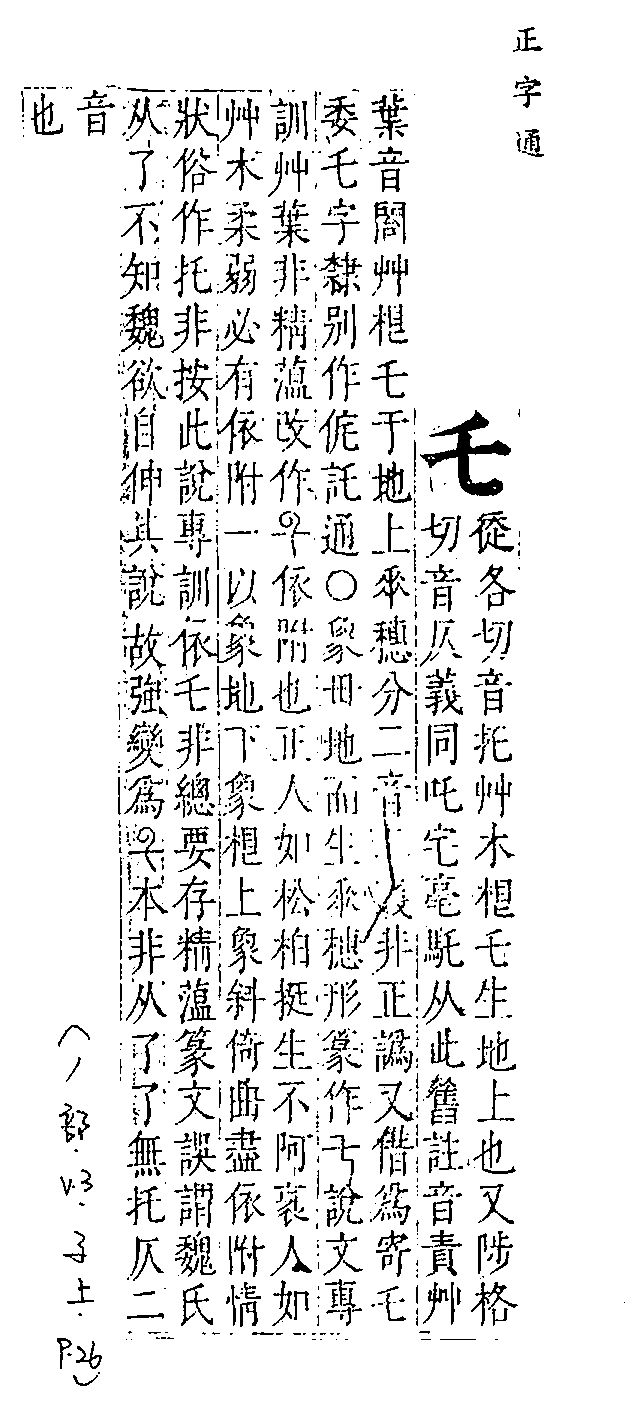 正字通
乇
從各切音托艸木根乇生地上也又陟格
切音仄義同吒宅亳馲从此舊註音責艸
葉音闇艸根乇于地上𠂹穗分二音非正譌又借爲寄乇
委乇字隸別作侂託通○象毌地而生𠂹穗形篆作說文專
訓艸葉非精薀改作依附也正人如松柏挺生不阿裒人如
艸木柔弱必有依附一以象地下象根上象斜倚曲盡依附情
狀俗作托非按此說專訓依乇非總要存精薀篆文誤謂魏氏
从了不知魏欲自伸其說故強變爲本非从了了無托仄二
音
也
(丿部.v.3.子上.P.26)